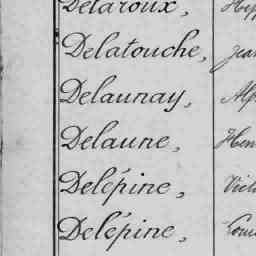 Delaroux,
Delatouche,
Delaunay,
Delaune,
Delépine,
Delépine,